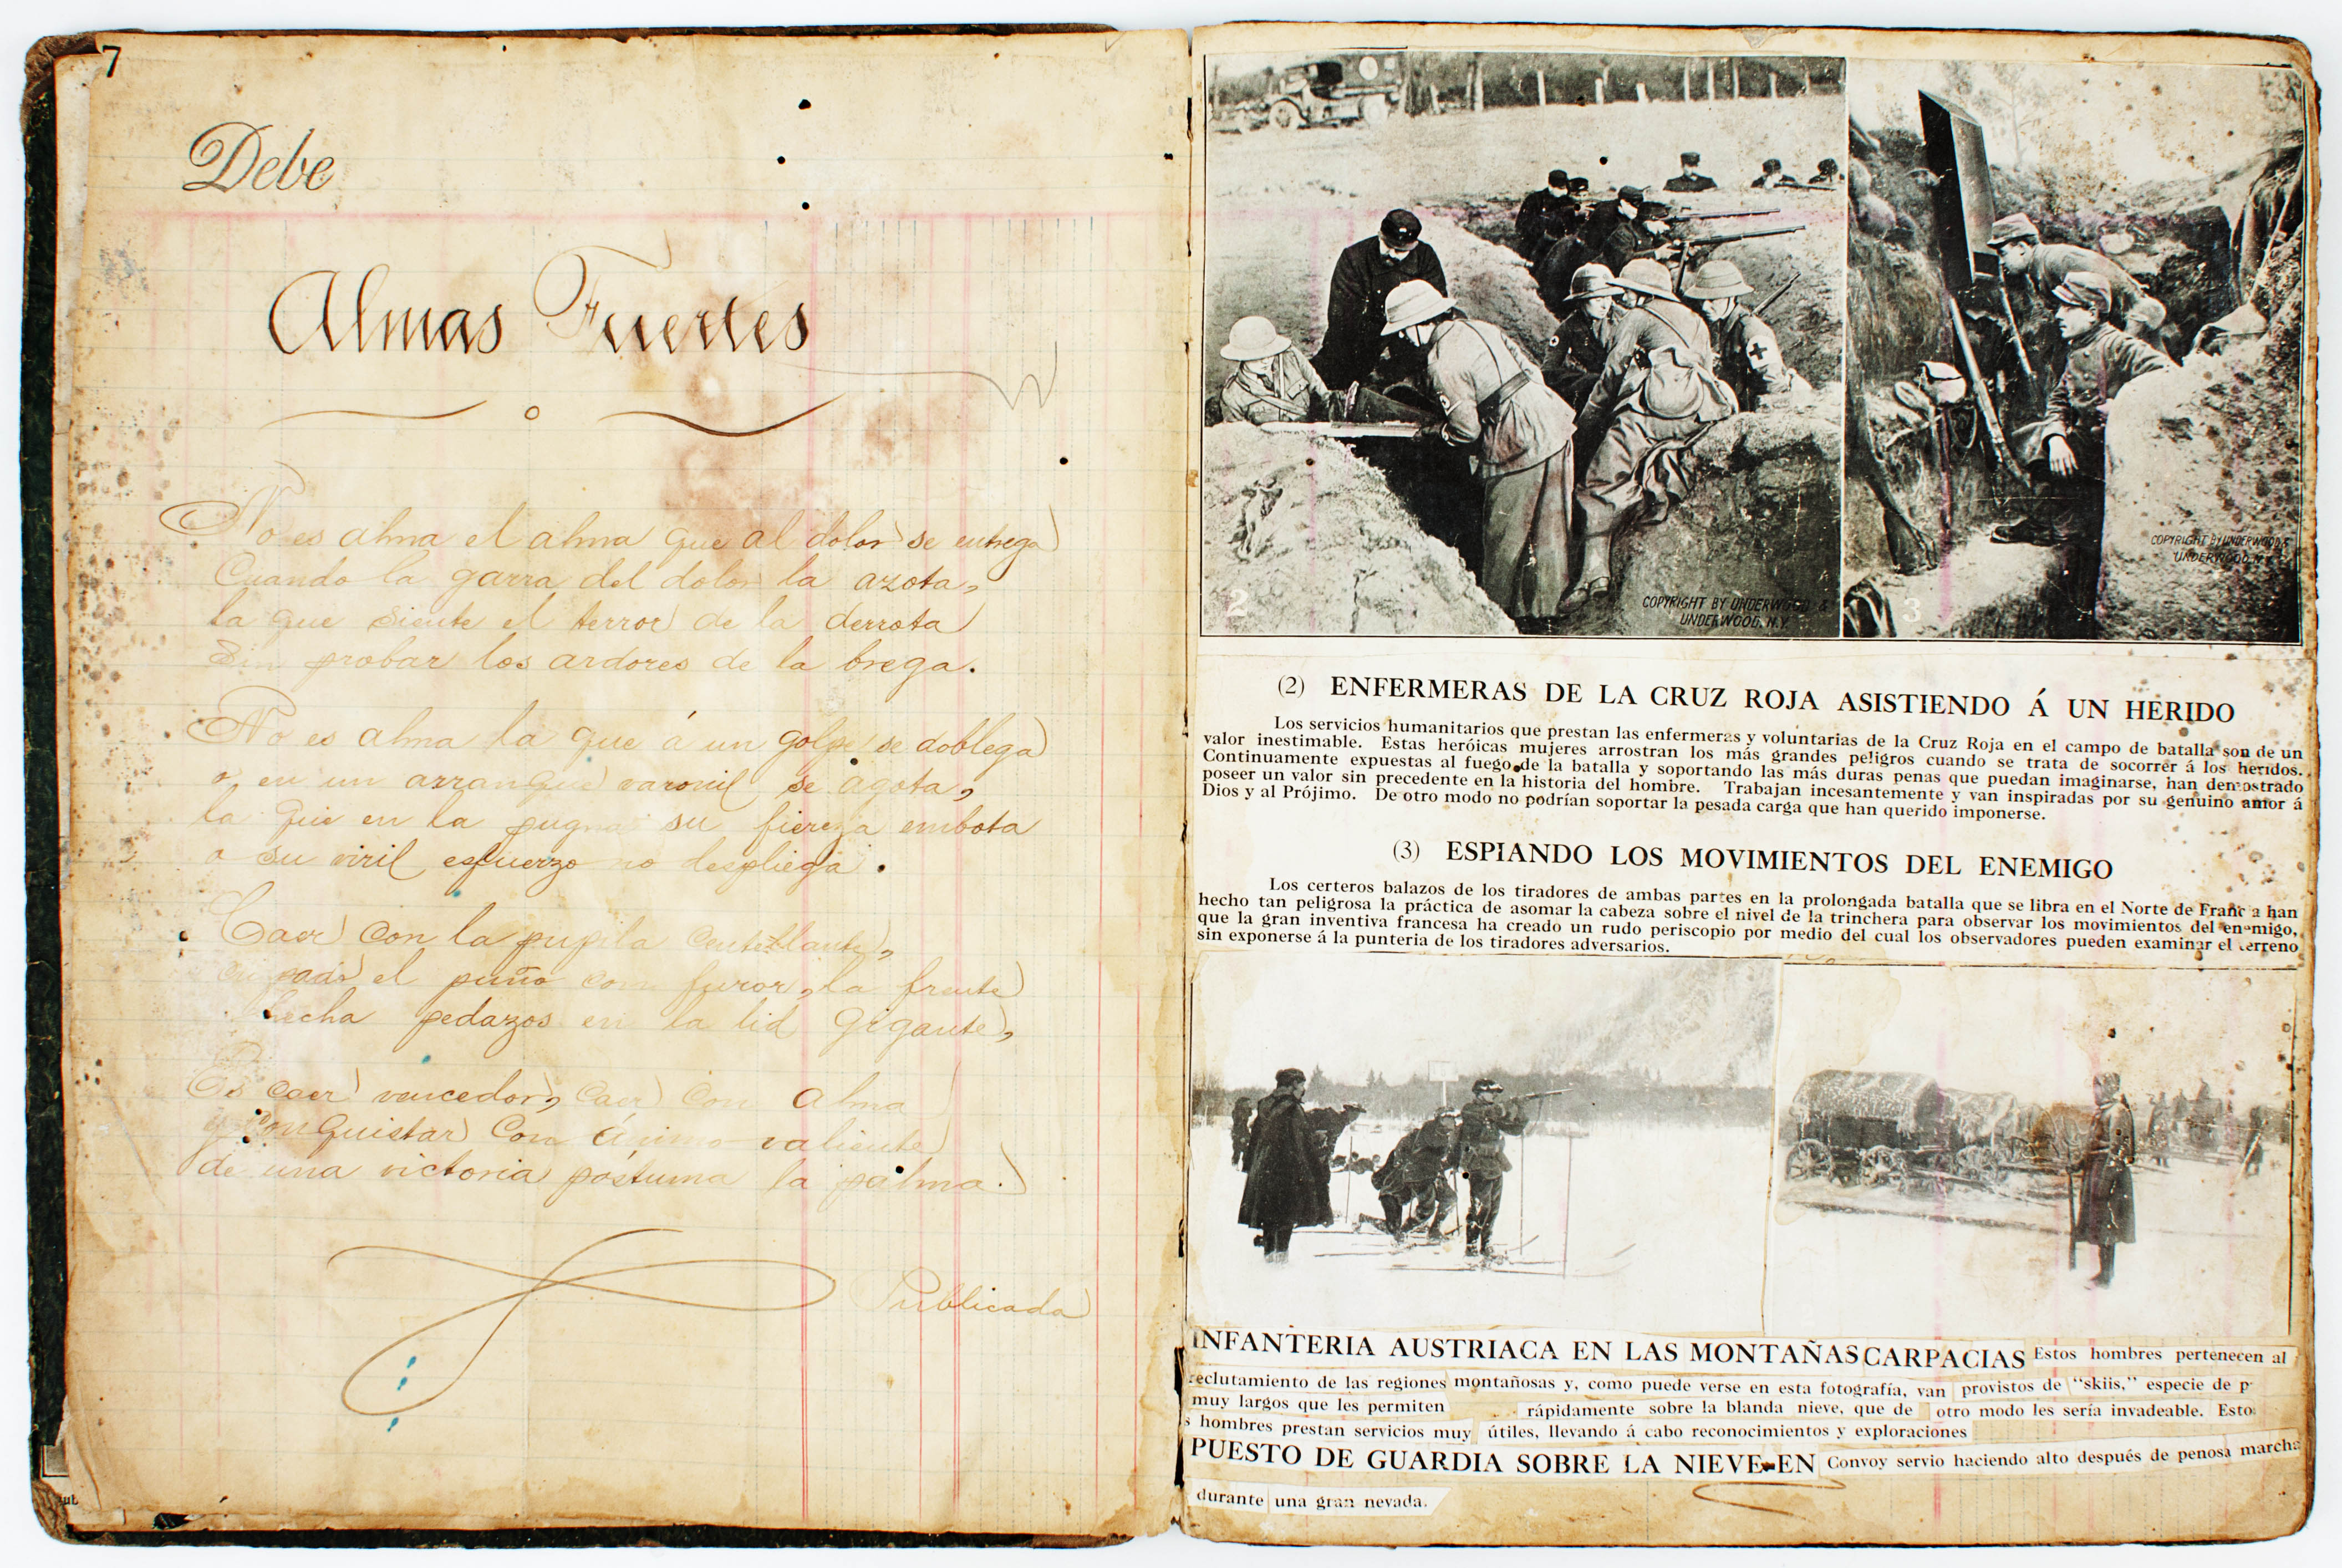 7
Debe
Almas Fuertes
No es alma el alma que al dolor se entrega
Cuando la garra del dolor la azota,
la que siente el terror de la derrota
Sin probar los ardores de la brega.
No es alma la que á un golpe se doblega
o en un arranque varonil se agota,
la que en la pugna su fiereza embota
o su viril esfuerzo no despliega.
Caer con la pupila centellante,
el puño con furor, la frente
hecha pedazos en la lid gigante,
Es caer vencedor, caer con alma
y conquistar con ánimo valiente
de una victoria póstuma la palma.
Publicada
2
COPYRIGHT BY UNDERWOOD &
UNDERWOOD, N.Y.
3
COPYRIGHT BY UNDERWOOD &
UNDERWOOD, N.Y.
(2) ENFERMERAS DE LA CRUZ ROJA ASISTIENDO Á UN HERIDO
Los servicios humanitarios que prestan las enfermeras y voluntarias de la Cruz Roja en el campo de batalla son de un
valor inestimable. Estas heróicas mujeres arrostran los más grandes peligros cuando se trata de socorrer á los heridos.
Continuamente expuestas al fuego de la batalla y soportando las más duras penas que puedan imaginarse, han demostrado
poseer un valor sin precedente en la historia del hombre. Trabajan incesantemente y van inspiradas por su genuino amor á
Dios y al Prójimo. De otro modo no podrían soportar la pesada carga que han querido imponerse.
(3) ESPIANDO LOS MOVIMIENTOS DEL ENEMIGO
Los certeros balazos de los tiradores de ambas partes en la prolongada batalla que se libra en el Norte de Francia han
hecho tan peligrosa la práctica de asomar la cabeza sobre el nivel de la trinchera para observar los movimientos del enemigo,
que la gran inventiva francesa ha creado un rudo periscopio por medio del cual los observadores pueden examinar el terreno
sin exponerse á la punteria de los tiradores adversarios.
INFANTERIA AUSTRIACA EN LAS MONTAÑAS CARPACIAS Estos hombres pertenecen al
reclutamiento de las regiones montañosas y, como puede verse en esta fotografía, van provistos de "skiis," especie de p
muy largos que les permiten rápidamente sobre la blanda nieve, que de otro modo les sería invadeable. Esto
s hombres prestan servicios muy útiles, llevando á cabo reconocimientos y exploraciones
PUESTO DE GUARDIA SOBRE LA NIEVE EN Convoy servio haciendo alto después de penosa marcha
durante una gran nevada.